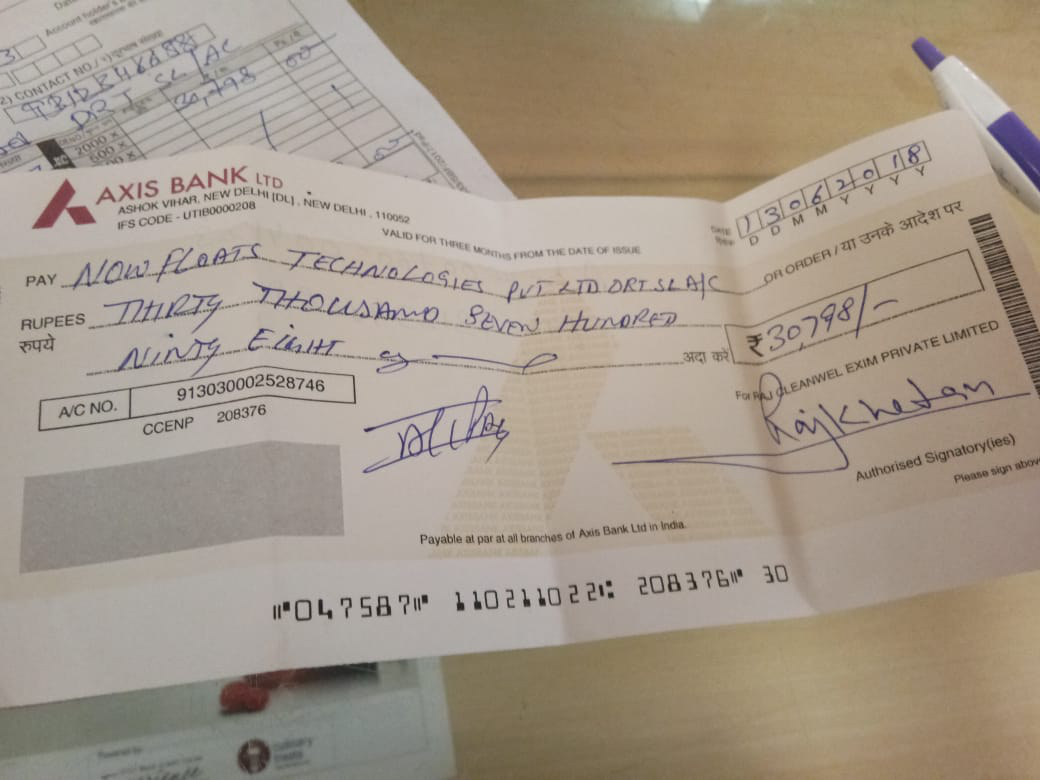 Account holder's
2) CONTACT NO. /
DRT SL A/C
30,798 00
2000 x
500 x
AXIS BANK LTD
ASHOK VIHAR, NEW DELHI [DL] , NEW DELHI , 110052
IFS CODE - UTIB0000208
VALID FOR THREE MONTHS FROM THE DATE OF ISSUE
DATE 13062018
दिनांक D D M M Y Y Y Y
PAY NOW FLOATS TECHNOLOGIES PVT LTD DRT SL A/C OR ORDER / या उनके आदेश पर
RUPEES THIRTY THOUSAND SEVEN HUNDRED
रुपये NINTY EIGHT अदा करें ₹ 30,798/-
A/C NO. 913030002528746
CCENP 208376
For RAJ CLEANWEL EXIM PRIVATE LIMITED
Raj Khetan
Authorised Signatory(ies)
Please sign above
Payable at par at all branches of Axis Bank Ltd in India.
⑈047587⑈ 110211022⑆ 208376⑈ 30
Powered by
culinary
treats